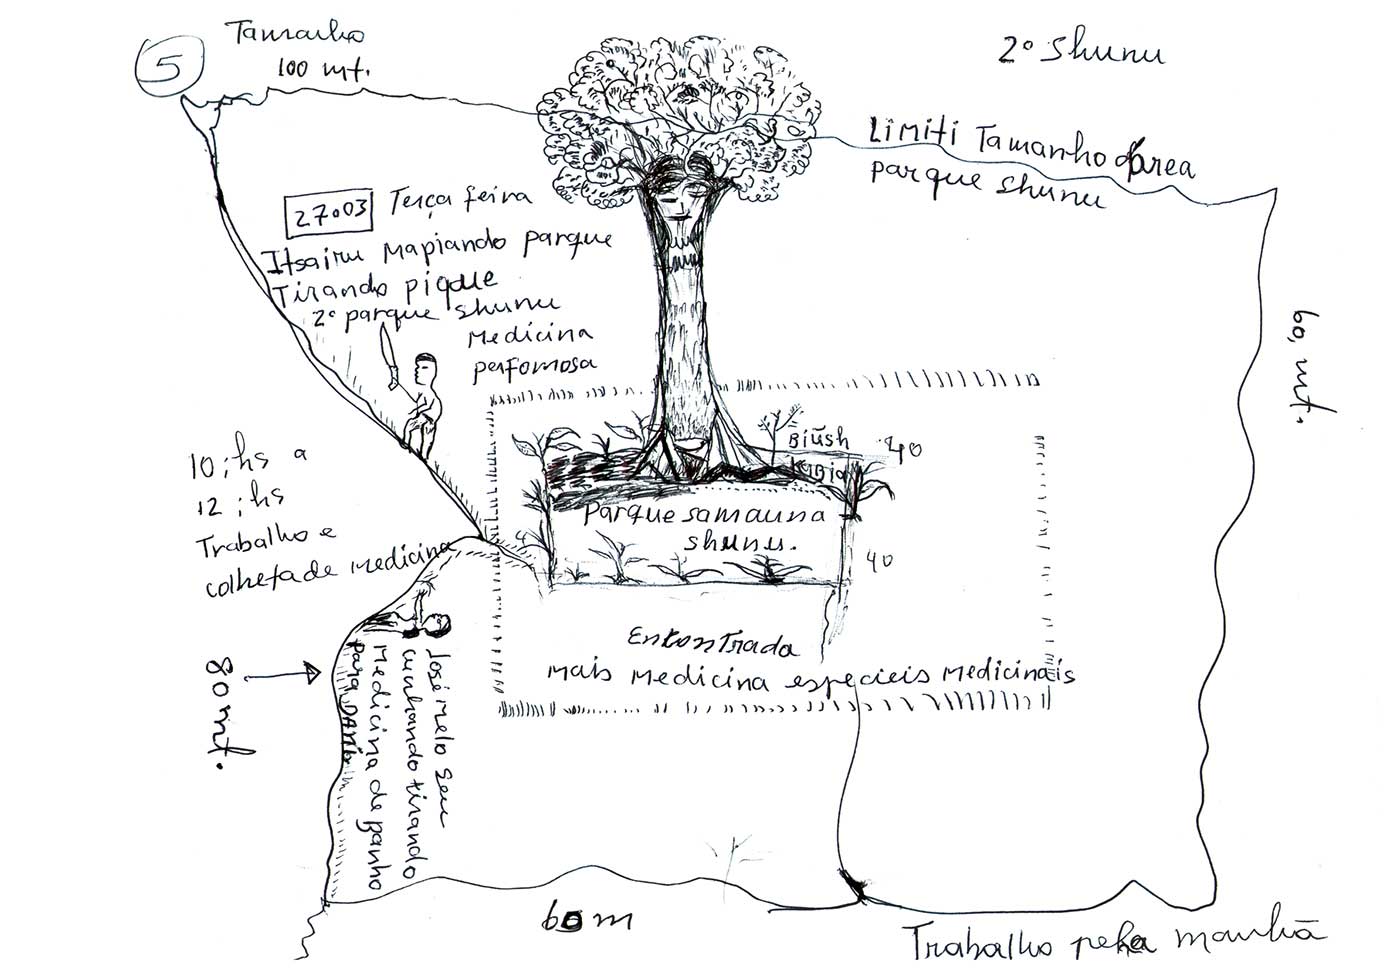 5
Tamanho
100 mt.
2º Shunu
Limiti Tamanho d área
parque shunu
27.03 Terça feira
Itsairu Mapiando parque
Tirando pique
2º parque shunu
Medicina
perfomosa
60, mt.
Biũsh
40
10;hs a
12;hs
Trabalho e
colheta de medicina
Parque samauna
shunu.
40
Entontrada
mais medicina especieis medicinais
80 mt.
José melo seu
cunhando tirando
Medicina de banho
para
60 m
Trabalho pela manhã